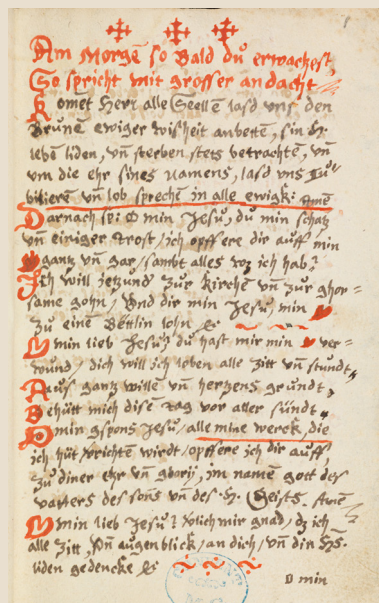 Am Morgē so bald du erwachest,
So sprich mit grosser andacht
Komet Herr alle Seellē lasd vns den
Brunē ewiger wisheit anbettē, sin H:
lebē liden, vn̄ sterben stets betrachtē, vn̄
vm die ehr sines Namens, lasd vns Iu¬
bilierē vn̄ lob sprechē in alle ewigk: Amē
Darnach sp: O min Jesu, du min schatz
vn̄ einiger trost, ich opffere dir auff min
gantz vn̄ gar, sambt alles wz ich hab?
Ich will jetzund zur kirchē vn̄ zur ghor=
same gohn, Vnd dir min Jesu, min
zu einē Bettlin lohn,
O min lieb Jesu? du hast mir min ver=
wund, dich will ich loben alle Zitt vn̄ stundt,
Aus gantz willē vn̄ hertzens grundt,
Behütt mich disē tag vor aller sündt.
O min gspons Jesu, alle mine werck, die
ich hüt verichten wirdt, opffere ich dir auff
zu diner ehr vn̄ glorij, im namē gott des
vatters des sons vn̄ des H: Geists. Amē
O min lieb Jesu? verlich mir gnad, dz ich
alle Zitt, vn̄ augenblick, an dich, vn̄ din H:
liden gedencke
O min